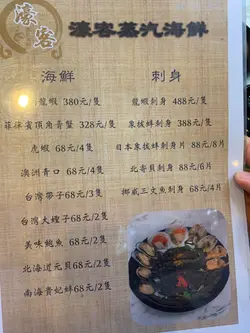 濠客
濠客蒸汽海鮮
海鮮
龍蝦 380元/隻
菲律賓頂角膏蟹 328元/隻
虎蝦 68元/4隻
澳洲青口 68元/4隻
台灣帶子68元/3隻
台灣大鱆子 68元/2隻
美味鮑魚 68元/2隻
北海道元貝68元/2隻
南海貴妃蚌68元/2隻
刺身
龍蝦刺身 488元/隻
象拔蚌刺身 388元/隻
日本象拔蚌刺身片 88元/8片
北寄貝刺身 88元/6片
挪威三文魚刺身 68元/4片